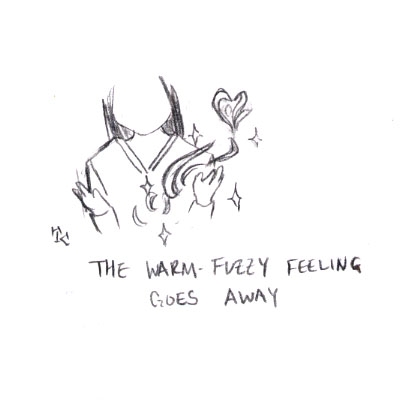 TK
THE WARM-FUZZY FEELING
GOES AWAY